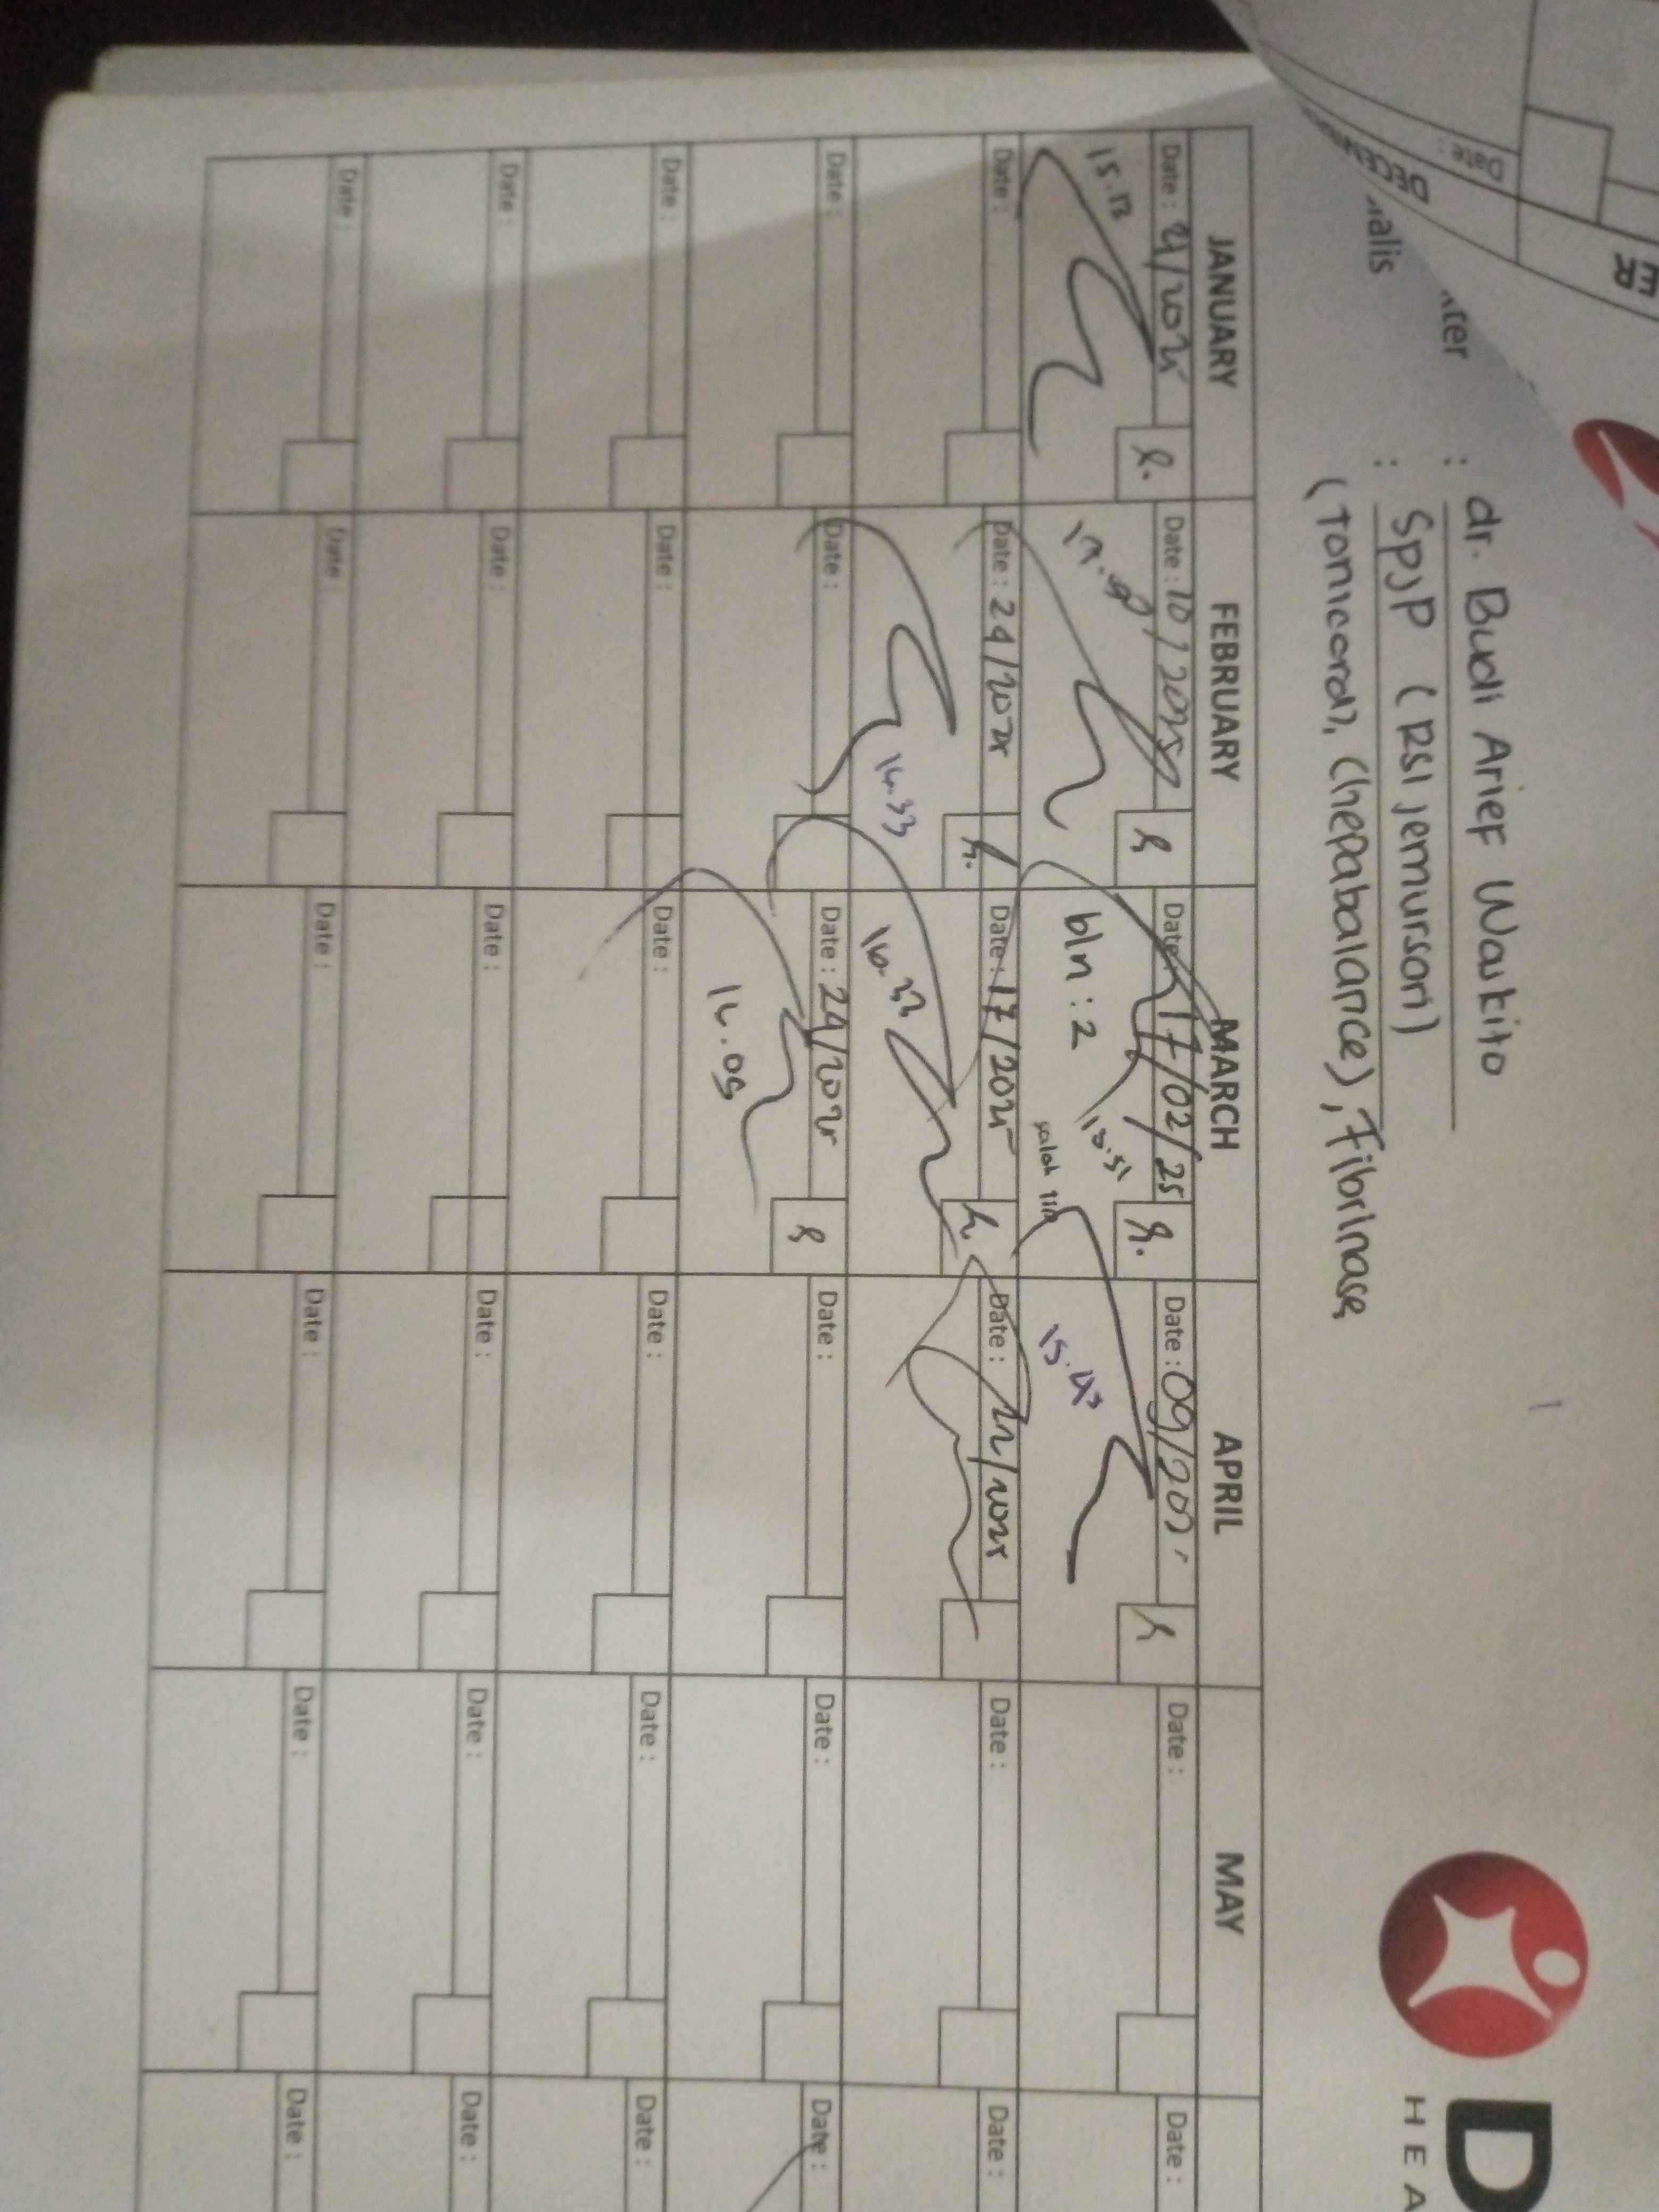 : dr. Budi Arief Waskito
: SpJP (RSI Jemursari)
(Tomcard?, Chepabalance), Fibrinase
D
HEA
JANUARY FEBRUARY MARCH APRIL MAY
Date : Date : 10 / 2025 Date : 17/02/25 Date : 09/202 Date : Date :
15.13 bln : 2 13.51 15.43
salah
Date : Date : 24/2025 Date : 17/2025 Date : 22/2025 Date : Date :
14.33 16.33
Date : Date : Date : 24/2025 Date : Date : Date :
14.05
Date : Date : Date : Date : Date : Date :
Date : Date : Date : Date : Date : Date :
Date : Date : Date : Date : Date : Date :
ter
alis
Date :
ER